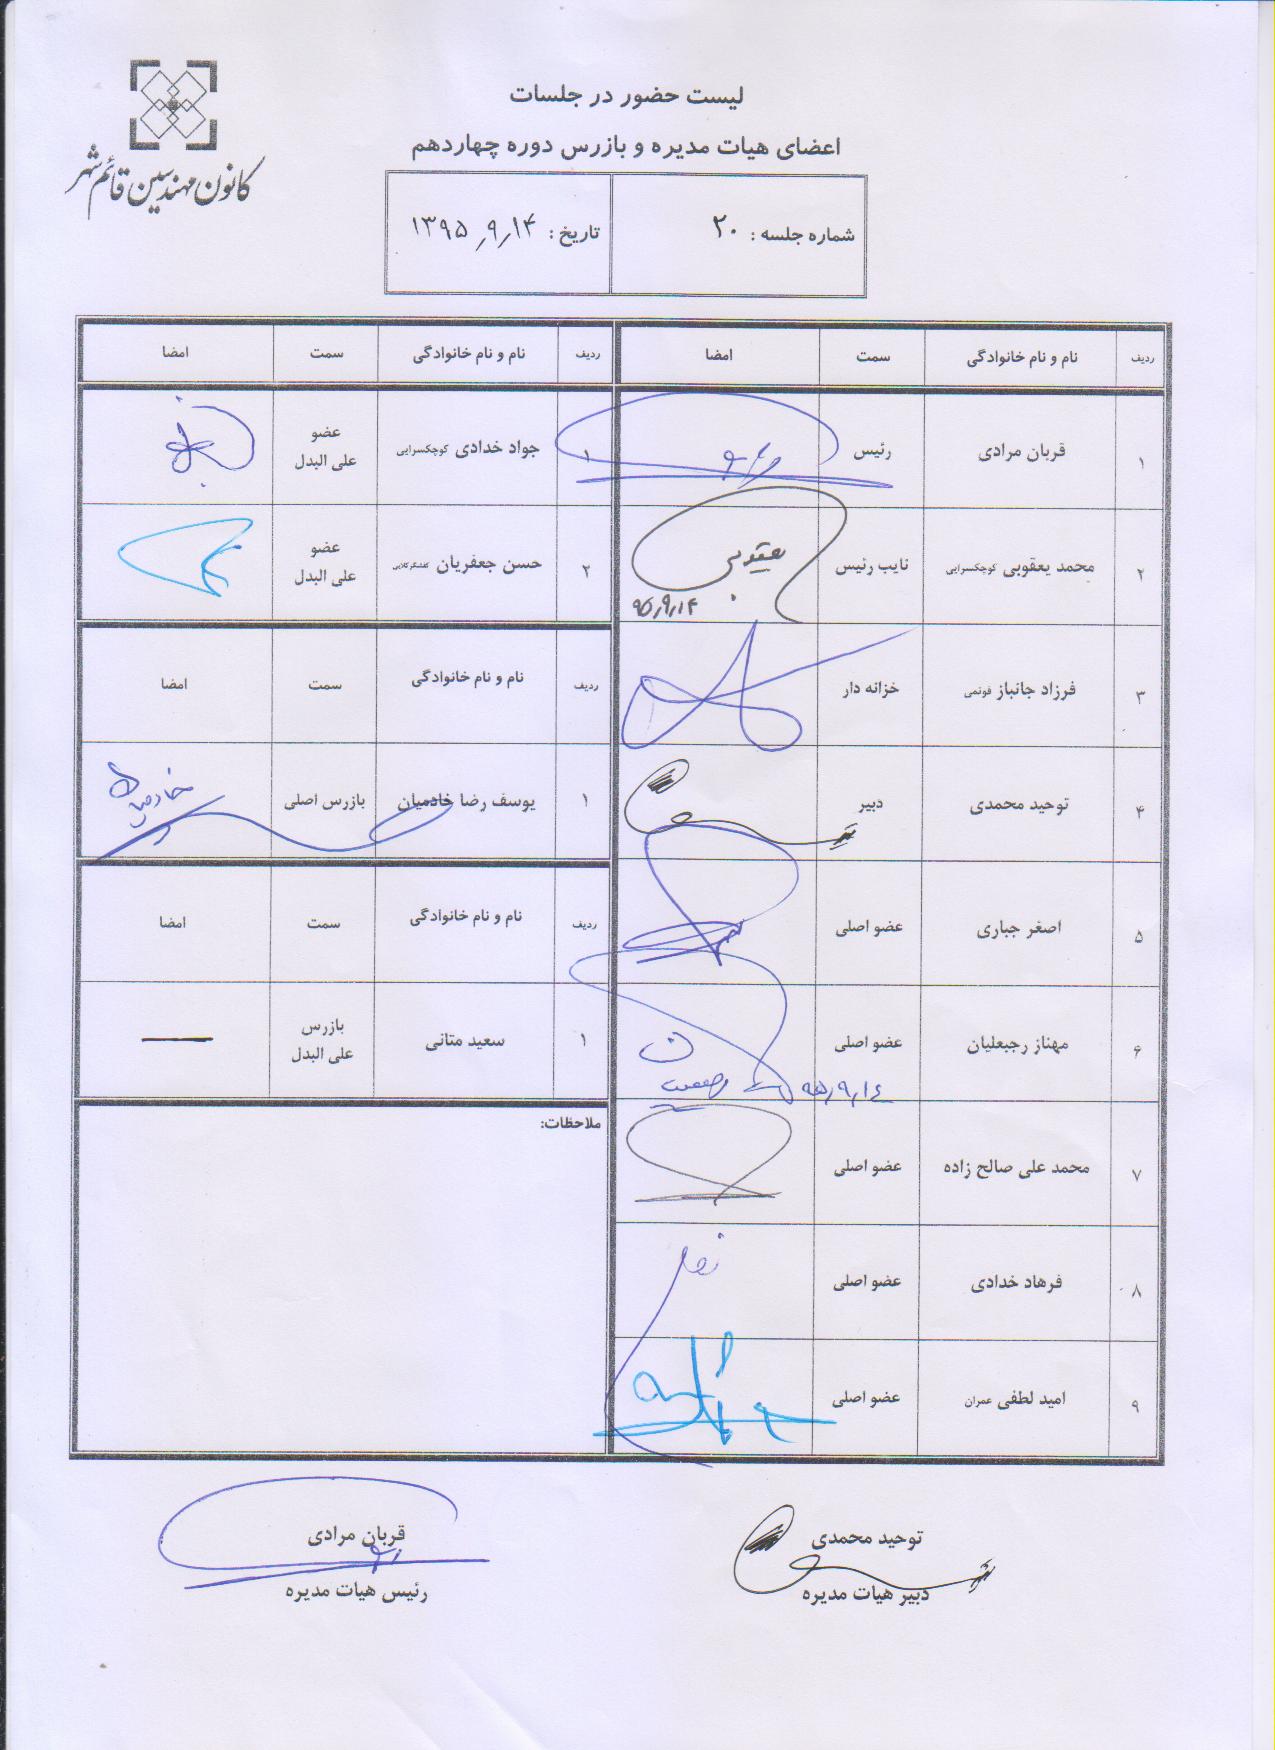 کانون مهندسین قائم شهر
لیست حضور در جلسات
اعضای هیات مدیره و بازرس دوره چهاردهم
شماره جلسه : ۲۰
تاریخ : ۱۳۹۵٫۹٫۱۴
ردیف نام و نام خانوادگی سمت امضا
۱ قربان مرادی رئیس
۲ محمد یعقوبی کوچکسرایی نایب رئیس یعقوبی
۹۵٫۹٫۱۴
۳ فرزاد جانباز فوتمی خزانه دار
۴ توحید محمدی دبیر
۵ اصغر جباری عضو اصلی
۶ مهناز رجبعلیان عضو اصلی
۹۵٫۹٫۱۴
۷ محمد علی صالح زاده عضو اصلی
۸ فرهاد خدادی عضو اصلی
۹ امید لطفی عمران عضو اصلی
ردیف نام و نام خانوادگی سمت امضا
۱ جواد خدادی کوچکسرایی عضو
علی البدل
۲ حسن جعفریان کفشگرکلایی عضو
علی البدل
ردیف نام و نام خانوادگی سمت امضا
۱ یوسف رضا خادمیان بازرس اصلی
ردیف نام و نام خانوادگی سمت امضا
۱ سعید متانی بازرس
علی البدل
ملاحظات:
توحید محمدی
دبیر هیات مدیره
قربان مرادی
رئیس هیات مدیره